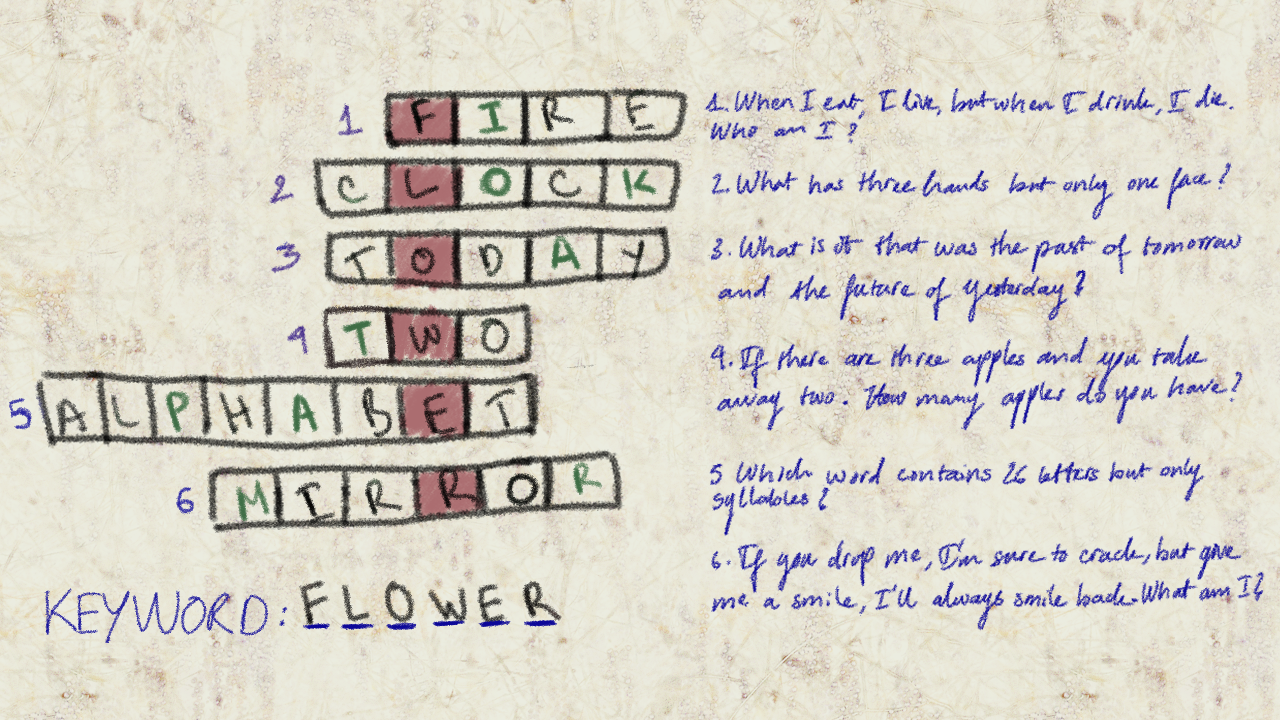 1 FIRE
2 CLOCK
3 TODAY
4 TWO
5 ALPHABET
6 MIRROR
KEYWORD: FLOWER
1. When I eat, I live, but when I drink, I die.
Who am I?
2. What has three hands but only one face?
3. What is it that was the past of tomorrow
and the future of yesterday?
4. If there are three apples and you take
away two. How many apples do you have?
5 Which word contains 26 letters but only
syllables?
6. If you drop me, I'm sure to crack, but give
me a smile, I'll always smile back. What am I?